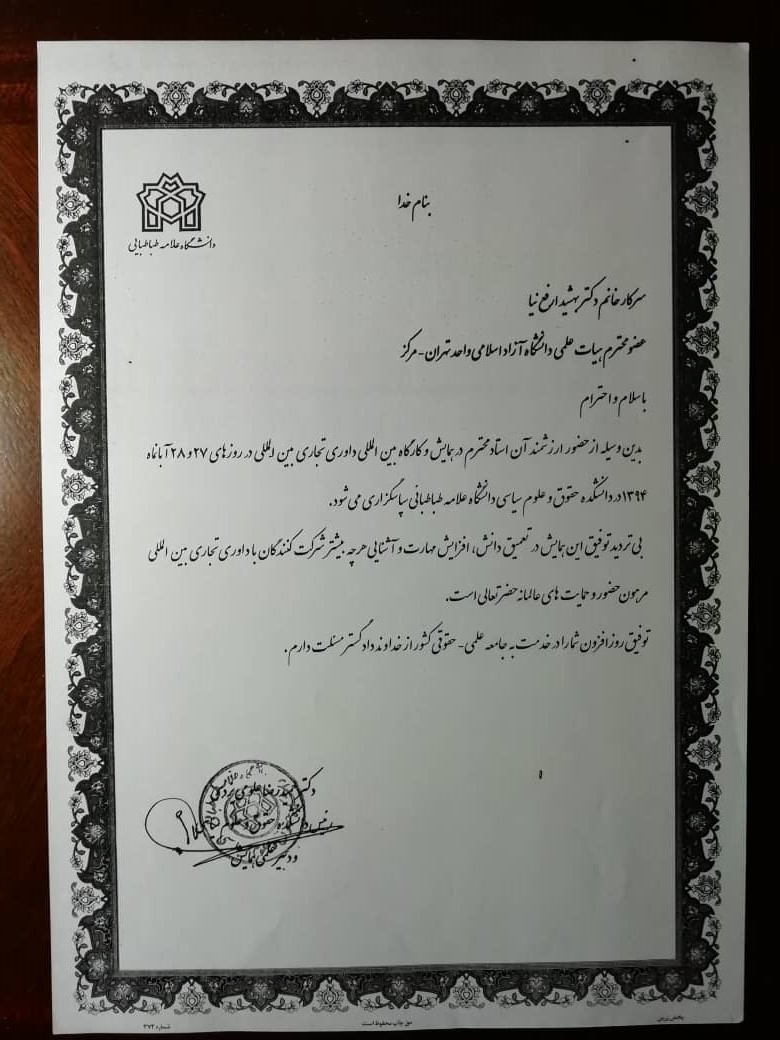 بنام خدا
دانشگاه علامه طباطبایی
سرکار خانم دکتر بهشید ارفع نیا
عضو محترم هیات علمی دانشگاه آزاد اسلامی واحد تهران - مرکز
با سلام و احترام
بدین وسیله از حضور ارزشمند آن استاد محترم در همایش و کارگاه بین المللی داوری تجاری بین المللی در روزهای ۲۷ و ۲۸ آبانماه
۱۳۹۴ در دانشکده حقوق و علوم سیاسی دانشگاه علامه طباطبائی سپاسگزاری می شود.
بی تردید توفیق این همایش در تعمیق دانش، افزایش مهارت و آشنایی هرچه بیشتر شرکت کنندگان با داوری تجاری بین المللی
مرهون حضور و حمایت های عالمانه حضرتعالی است.
توفیق روزافزون شما را در خدمت به جامعه علمی - حقوقی کشور از خداوند دادگستر مسئلت دارم.
دکتر
رئیس دانشکده حقوق و علوم
و دبیر علمی همایش
شماره ۲۷۲
حق چاپ محفوظ است